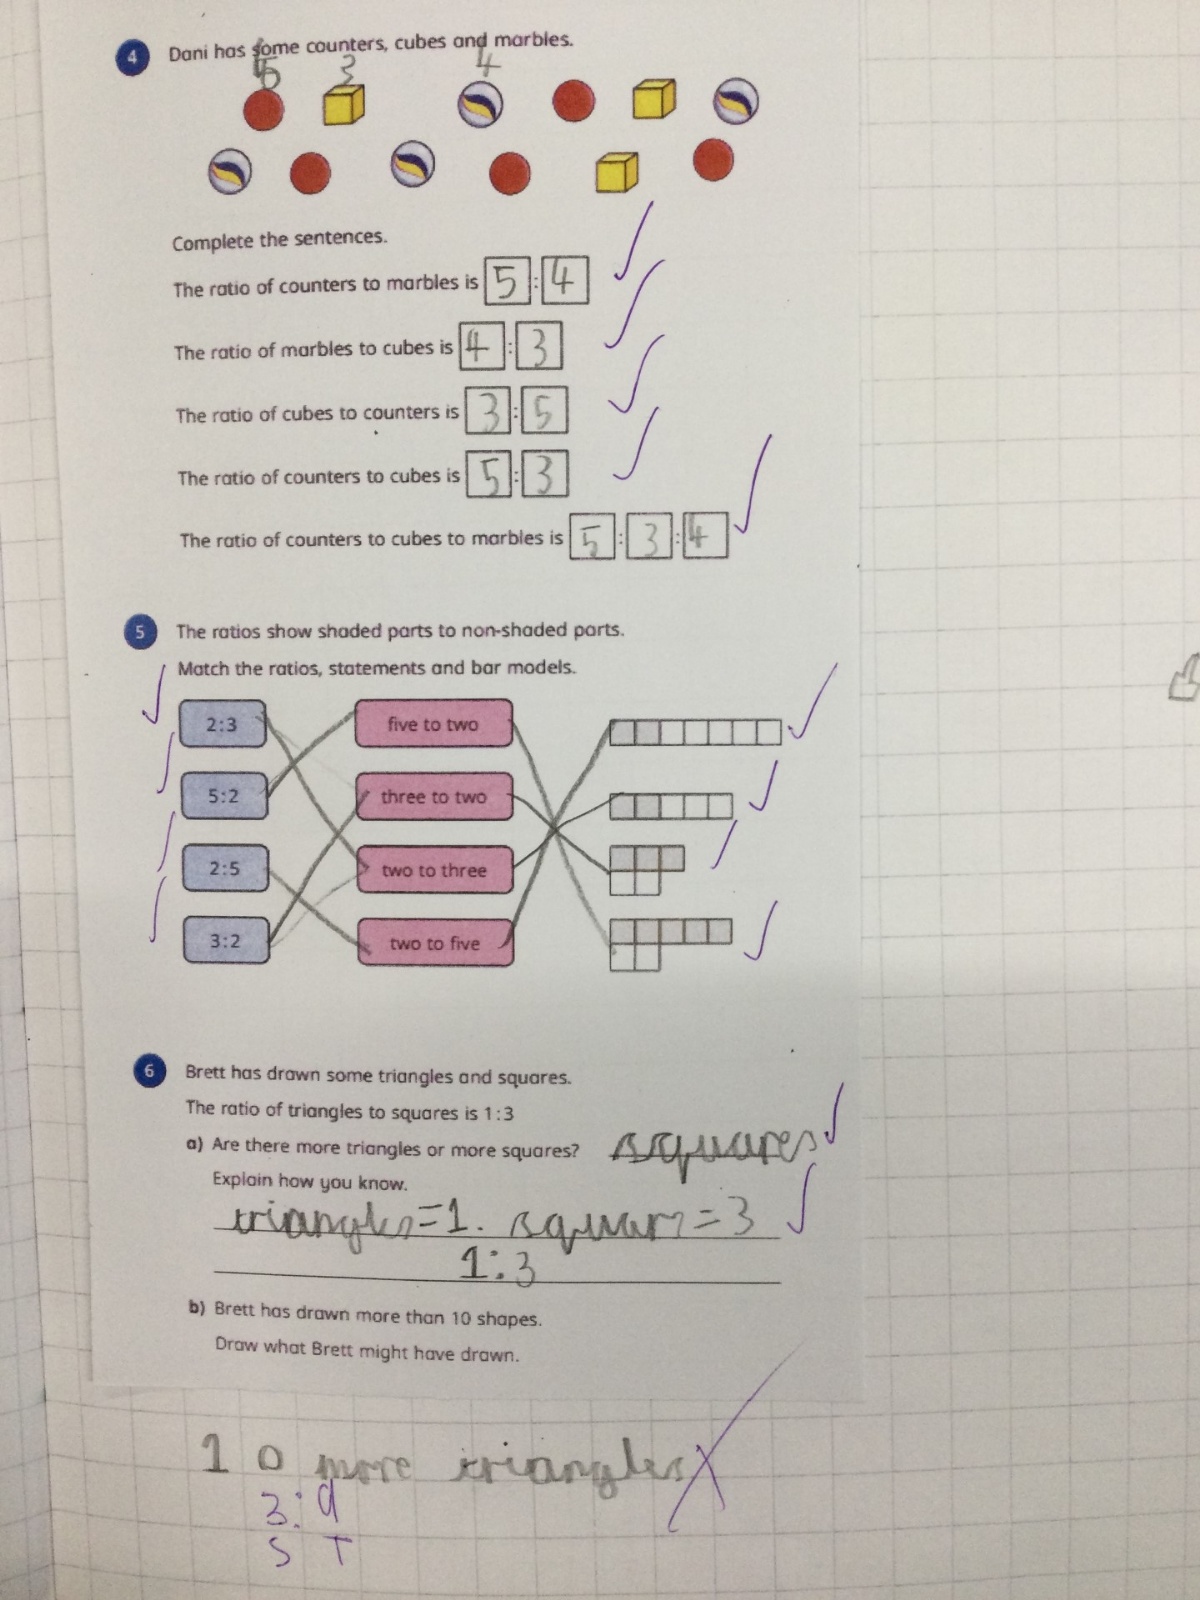 4 Dani has some counters, cubes and marbles.
5 3 4
Complete the sentences.
The ratio of counters to marbles is 5 : 4
The ratio of marbles to cubes is 4 : 3
The ratio of cubes to counters is 3 : 5
The ratio of counters to cubes is 5 : 3
The ratio of counters to cubes to marbles is 5 : 3 : 4
5 The ratios show shaded parts to non-shaded parts.
Match the ratios, statements and bar models.
2:3 five to two
5:2 three to two
2:5 two to three
3:2 two to five
6 Brett has drawn some triangles and squares.
The ratio of triangles to squares is 1:3
a) Are there more triangles or more squares? squares
Explain how you know.
triangles=1. squars=3
1:3
b) Brett has drawn more than 10 shapes.
Draw what Brett might have drawn.
10 more triangles
3:9
S T